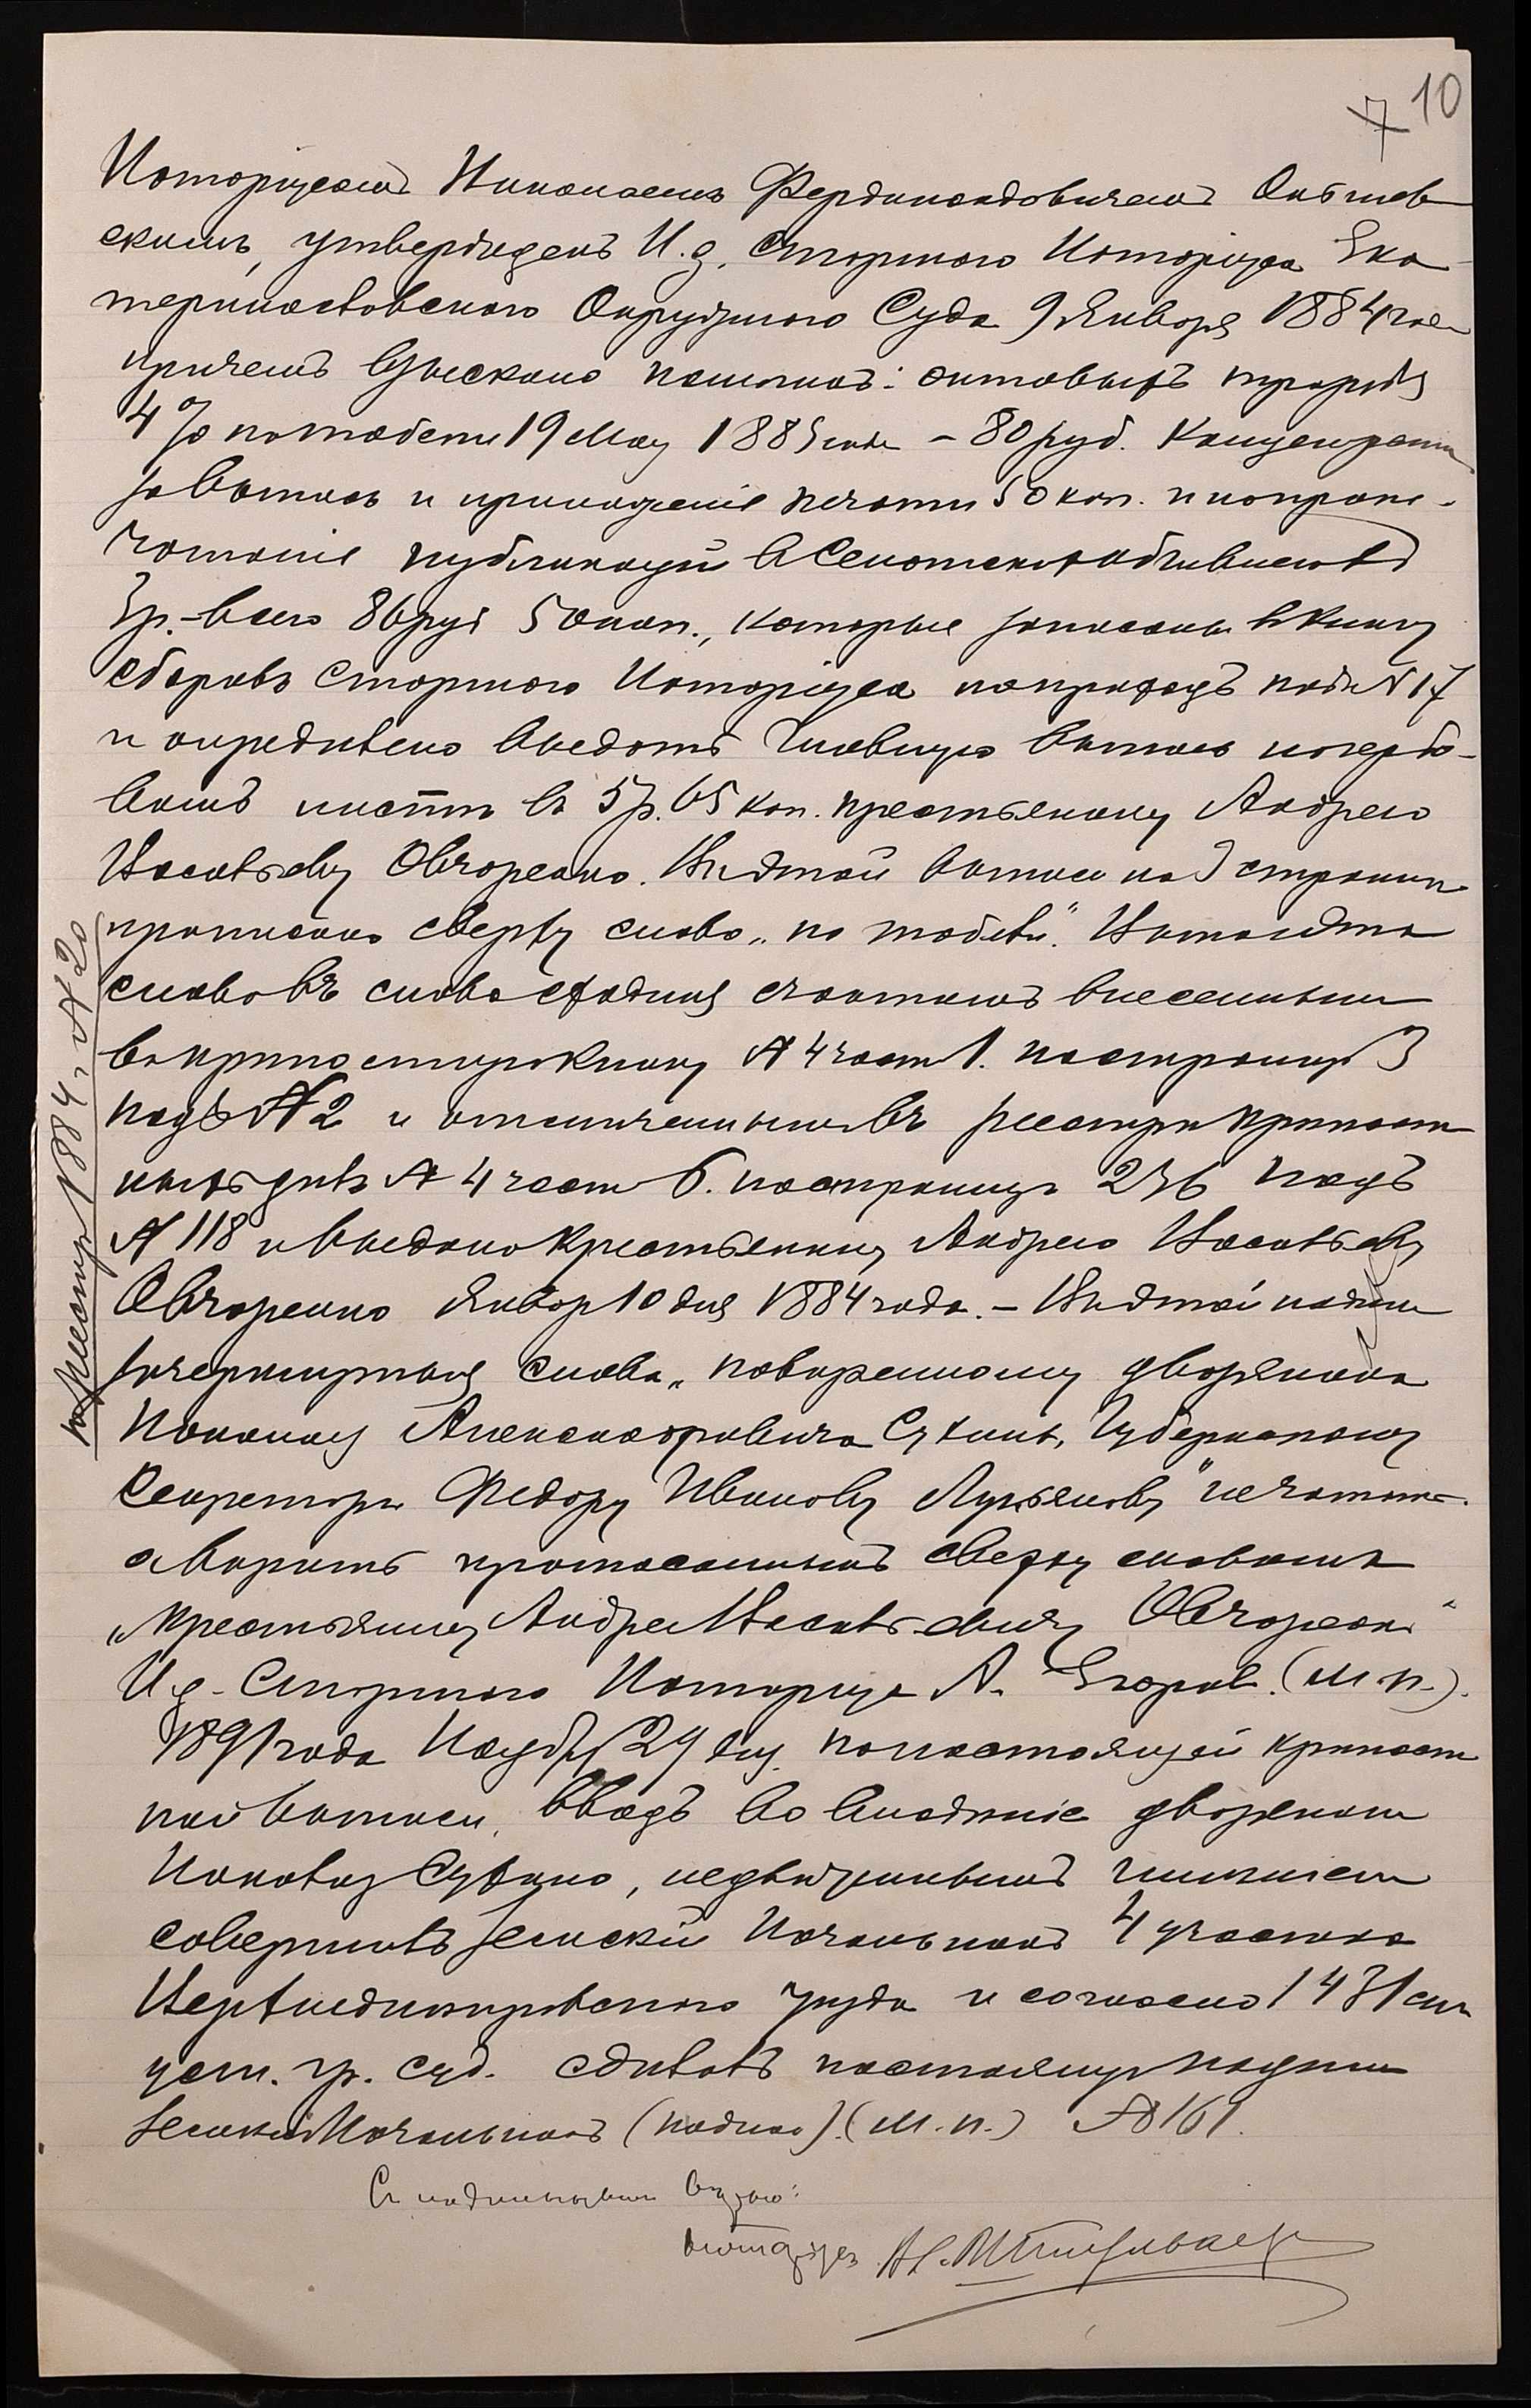 7 10
Нотаріусомъ Николаемъ Фердинандовичемъ
скимъ, утвержденъ И. д. Старшаго Нотаріуса Ека
теринославскаго Окружнаго Суда 9 Января 1884 года
причемъ взыскано пошлинъ: актовыхъ
4% по табели 19 Мая 1883 года - 80 руб. Канцелярск
за выпись и приложеніе печати 50 коп. и на припе-
чатаніе публикацій въ Сенатскихъ объявленіяхъ
3 р. - всего 86 руб 50 коп., которые записаны въ книгу
сборовъ Старшаго Нотаріуса на приходъ подъ N 17
и опредѣлено выдать главную выпись на гербо-
вомъ листѣ въ 5 р. 65 коп. крестьянину Андрею
Васильеву Овчаренко. Въ этой выписи на 3 страниц
приписано сверху слово „по табели". Выпись эта
слово въ слово сходна съ актомъ внесеннымъ
въ крѣпостную книгу № 4 часть 1. на страницѣ 3
подъ № 2 и отмѣченнымъ въ реестрѣ крѣпост
ныхъ дѣлъ № 4 часть 6. на страницѣ 236 подъ
№ 118 и выдана крестьянину Андрею Васильеву
Овчаренко Января 10 дня 1884 года. - Въ этой надпи
зачеркнутыя слова „повѣренному дворянина
Николая Александровича Сухина, Губернскому
Секретарю Федору Иванову Лукьянову" не читать
а вѣрить прописаннымъ сверху словамъ
„Крестьянину Андрею Васильевичу Овчаренко"
И. д. Старшаго Нотаріуса А. Егоровъ. (М. п.).
1891 года Ноября 29 дня. по настоящей крѣпост
ной выписи, вводъ во владѣніе дворянина
Сухина, недвижимымъ имѣніемъ
совершилъ Земскій Начальникъ 4 участка
Верхнеднѣпровскаго уѣзда и согласно 1431 ст.
уст. гр. суд. сдѣлалъ настоящую надпись
Земскій Начальникъ (подпис). (М. п.) № 161.
Съ подлиннымъ вѣрно:
Нотаріусъ
по Реестру 1884 г. № 20